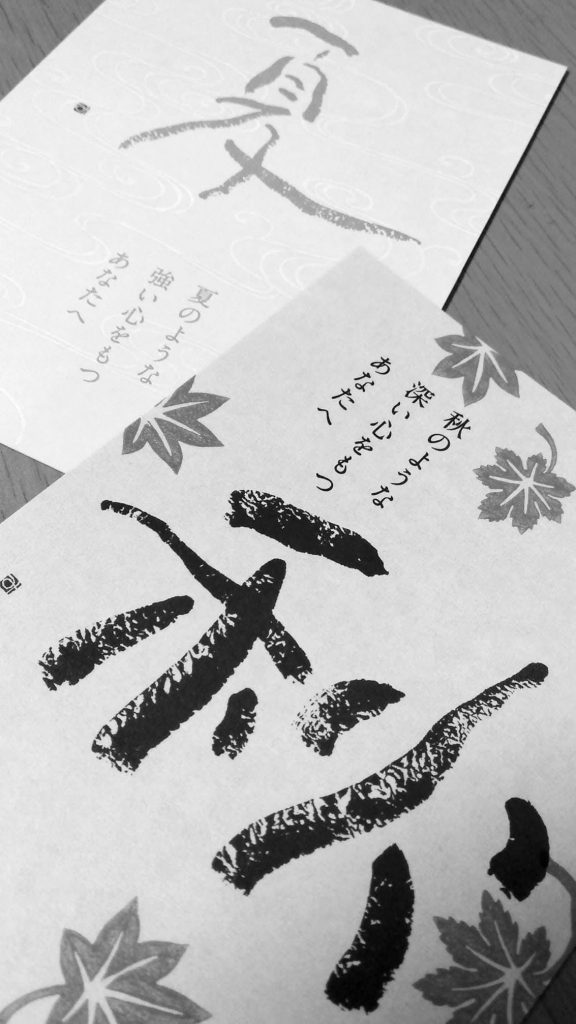 夏
夏のような
強い心をもつ
あなたへ
秋のような
深い心をもつ
あなたへ
秋